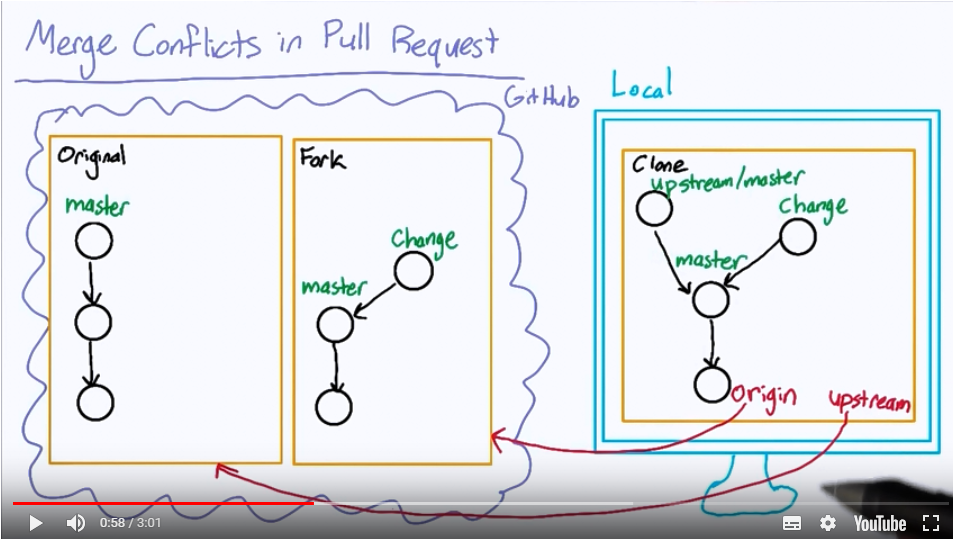 Merge Conflicts in Pull Request
GitHub
Local
Original
master
Fork
Change
master
Clone
upstream/master
Change
master
Origin
upstream
0:58 / 3:01
YouTube